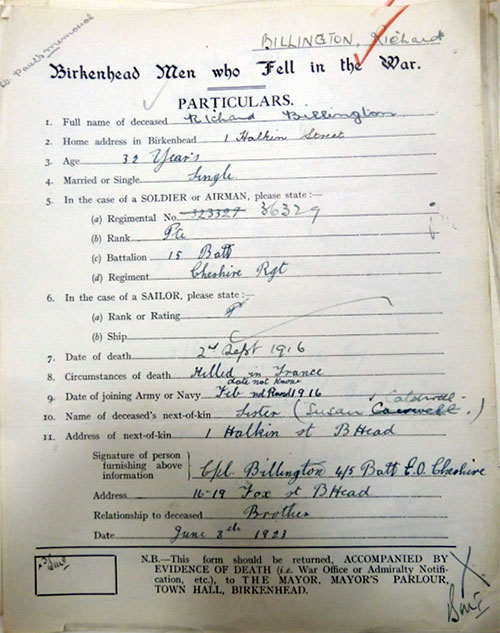 St Pauls Memorial
BILLINGTON, Richard
Birkenhead Men who Fell in the War.
PARTICULARS.
1. Full name of deceased Richard Billington
2. Home address in Birkenhead 1 Halkin Street
3. Age 32 Years
4. Married or Single Single
5. In the case of a SOLDIER or AIRMAN, please state :—
(a) Regimental No. 323327 36329
(b) Rank Pte
(c) Battalion 15 Batt
(d) Regiment Cheshire Rgt
6. In the case of a SAILOR, please state :—
(a) Rank or Rating
(b) Ship
7. Date of death 2nd Sept 1916
8. Circumstances of death Killed in France
date not know
9. Date of joining Army or Navy Feb 1916
10. Name of deceased's next-of-kin Sister (Susan
11. Address of next-of-kin 1 Halkin st BHead
Signature of person
furnishing above
information Cpl. Billington 4/5 Batt E.O. Cheshire
Address 16-19 Fox st BHead
Relationship to deceased Brother
Date June 8th 1923
N.B.—This form should be returned, ACCOMPANIED BY
EVIDENCE OF DEATH (i.e. War Office or Admiralty Notifi-
cation, etc.), to THE MAYOR, MAYOR'S PARLOUR,
TOWN HALL, BIRKENHEAD.